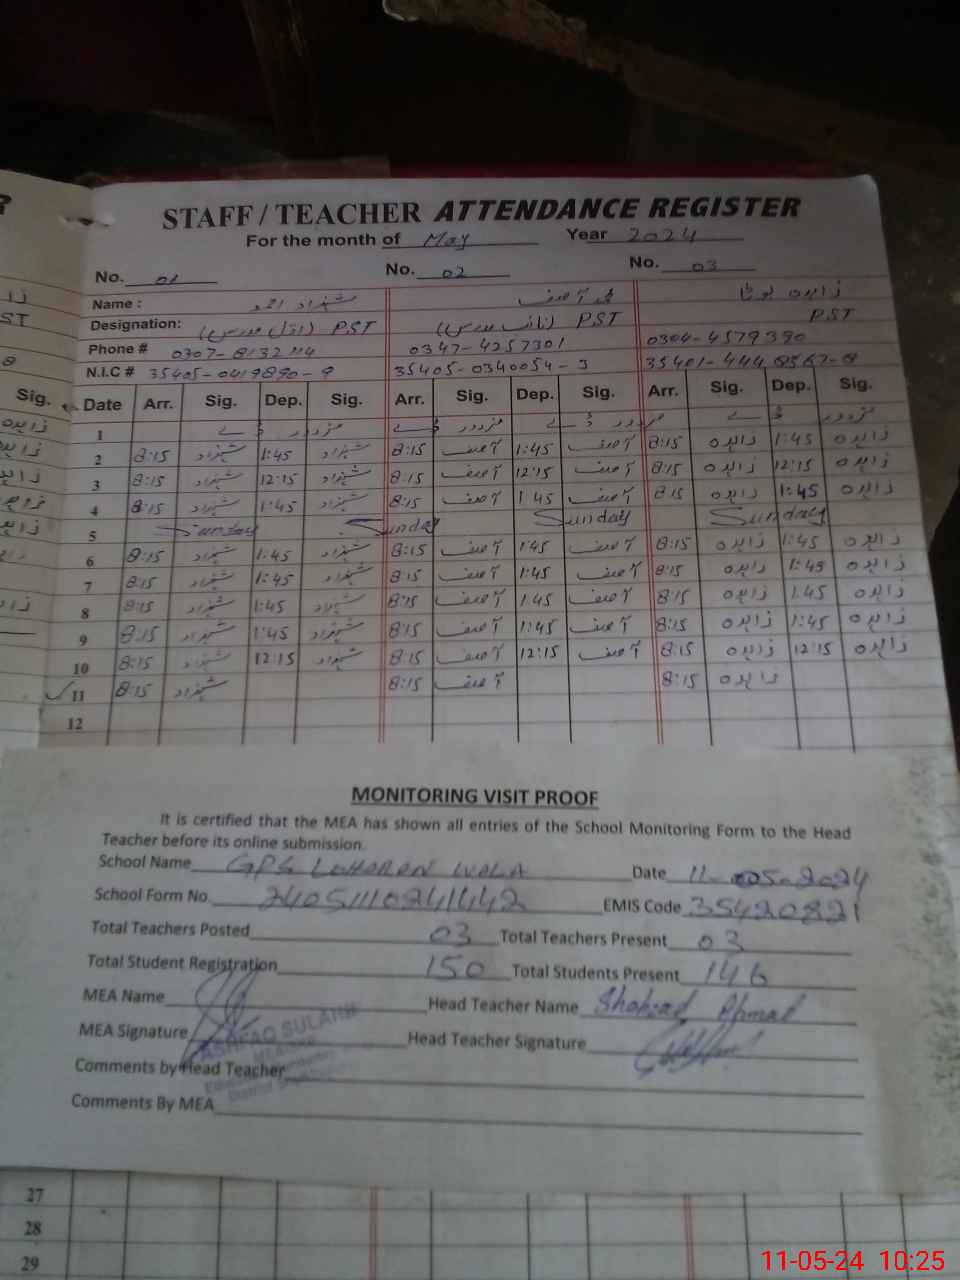 STAFF / TEACHER ATTENDANCE REGISTER
For the month of May Year 2024
No. 01 No. 02 No. 03
Name : شہزاد احمد محمد آصف زاہدہ بوٹا
Designation: (اول مدرس) P.S.T (نائب مدرس) P.S.T P.S.T
Phone # 0347-4257301 0304-4579390
N.I.C # 35405-0419890-9 35405-0340054-3 35401-444 8567-8
Sig. Date Arr. Sig. Dep. Sig. Arr. Sig. Dep. Sig. Arr. Sig. Dep. Sig.
1 مزدور ڈے مزدور ڈے مزدور ڈے
2 8:15 شہزاد 1:45 شہزاد 8:15 آصف 1:45 آصف 8:15 زاہدہ 1:45 زاہدہ
3 8:15 شہزاد 12:15 شہزاد 8:15 آصف 12:15 آصف 8:15 زاہدہ 12:15 زاہدہ
4 8:15 شہزاد 1:45 شہزاد 8:15 آصف 1 45 آصف 8:15 زاہدہ 1:45 زاہدہ
5 Sunday Sunday Sunday Sunday
6 8:15 شہزاد 1:45 شہزاد 8:15 آصف 1:45 آصف 8:15 زاہدہ 1:45 زاہدہ
7 8:15 شہزاد 1:45 شہزاد 8:15 آصف 1:45 آصف 8:15 زاہدہ 1:45 زاہدہ
8 8:15 شہزاد 1:45 شہزاد 8:15 آصف 1:45 آصف 8:15 زاہدہ 1:45 زاہدہ
9 8:15 شہزاد 1:45 شہزاد 8:15 آصف 1:45 آصف 8:15 زاہدہ 1:45 زاہدہ
10 8:15 شہزاد 12:15 شہزاد 8:15 آصف 12:15 آصف 8:15 زاہدہ 12:15 زاہدہ
11 8:15 شہزاد 8:15 آصف 8:15 زاہدہ
12
MONITORING VISIT PROOF
It is certified that the MEA has shown all entries of the School Monitoring Form to the Head
Teacher before its online submission.
School Name GPS LOHORAN WALA Date 11-05-2024
School Form No. 240511110241442 EMIS Code 35420821
Total Teachers Posted 03 Total Teachers Present 03
Total Student Registration 150 Total Students Present 146
MEA Name Head Teacher Name Shahzad Ahmad
MEA Signature ASHFAQ SULAHRI Head Teacher Signature
Comments by Head Teacher
Comments By MEA
27
28
29
11-05-24 10:25